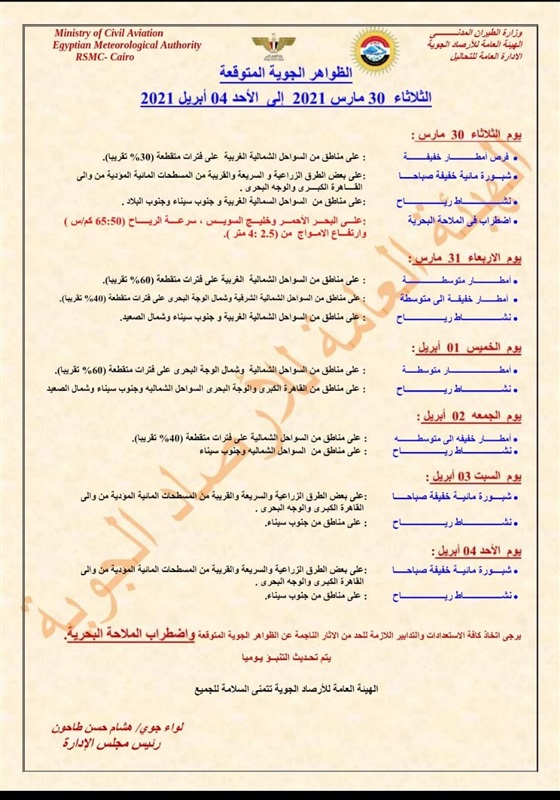 Ministry of Civil Aviation
Egyptian Meteorological Authority
RSMC- Cairo
وزارة الطيران المدنـــي
الهيئة العامة للأرصاد الجوية
الادارة العامة للتحاليل
الظواهر الجوية المتوقعة
الثلاثاء 30 مارس 2021 إلى الأحد 04 أبريل 2021
يوم الثلاثاء 30 مارس :
• فرص أمطـــار خفيفـــة : على مناطق من السواحل الشمالية الغربية على فترات متقطعة (30% تقريبا).
• شبـورة مائية خفيفة صباحـا : على بعض الطرق الزراعية و السريعة والقريبة من المسطحات المائية المؤدية من والى
القـاهرة الكبـــرى والوجه البحرى .
• نشـــاط ريـــاح : على مناطق من السواحل السمالية الغربية و جنوب سيناء وجنوب البلاد .
• اضطراب فى الملاحة البحرية : علـــى البحـر الأحمـــر وخليـج السويـس ، سرعـــة الريـــاح ( 65:50 كم/س )
وارتفـاع الامـواج من (2.5 :4 متر ).
يوم الاربعاء 31 مارس :
• أمطـــار متوسطـــة : على مناطق من السواحل الشمالية الغربية على فترات متقطعة (60% تقريبا).
• أمطـــار خفيفـة الى متوسطة : على مناطق من السواحل الشمالية الشرقية وشمال الوجة البحرى على فترات متقطعة (40% تقريبا).
• نشـــاط ريـــاح : على مناطق من السواحل الشمالية الغربية و جنوب سيناء وشمال الصعيد.
يوم الخميس 01 أبريل :
• أمطـــار متوسطـــة : على مناطق من السواحل الشمالية وشمال الوجة البحرى على فترات متقطعة (60% تقريبا).
• نشـــاط ريـــاح : على مناطق من القاهرة الكبرى والوجة البحرى السواحل الشماليه وجنوب سيناء وشمال الصعيد
يوم الجمعه 02 أبريل :
• أمطـــار خفيفه الى متوسطـــه : على مناطق من السواحل الشمالية على فترات متقطعة (40% تقريبا).
• نشـــاط ريـــاح : على مناطق من السواحل الشماليه وجنوب سيناء
يوم السبت 03 أبريل :
• شبـورة مائيـة خفيفة صباحـا :على بعض الطرق الزراعية والسريعة والقريبة من المسطحات المائية المؤدية من والى
القاهرة الكبرى والوجه البحرى .
• نشـــاط ريـــاح :على مناطق من جنوب سيناء.
يوم الأحد 04 أبريل :
• شبـورة مائيـة خفيفة صباحـا :على بعض الطرق الزراعية والسريعة والقريبة من المسطحات المائية المؤدية من والى
القاهرة الكبرى والوجه البحرى .
• نشـــاط ريـــاح :على مناطق من جنوب سيناء.
يرجى اتخاذ كافة الاستعدادات والتدابير اللازمة للحد من الاثار الناجمة عن الظواهر الجوية المتوقعة واضطراب الملاحة البحرية.
يتم تحديث التنبـؤ يوميا
الهيئة العامة للأرصاد الجوية تتمنى السلامة للجميع
لواء جوي/ هشام حسن طاحون
رئيس مجلس الإدارة
الهيئة العامة للأرصاد الجوية